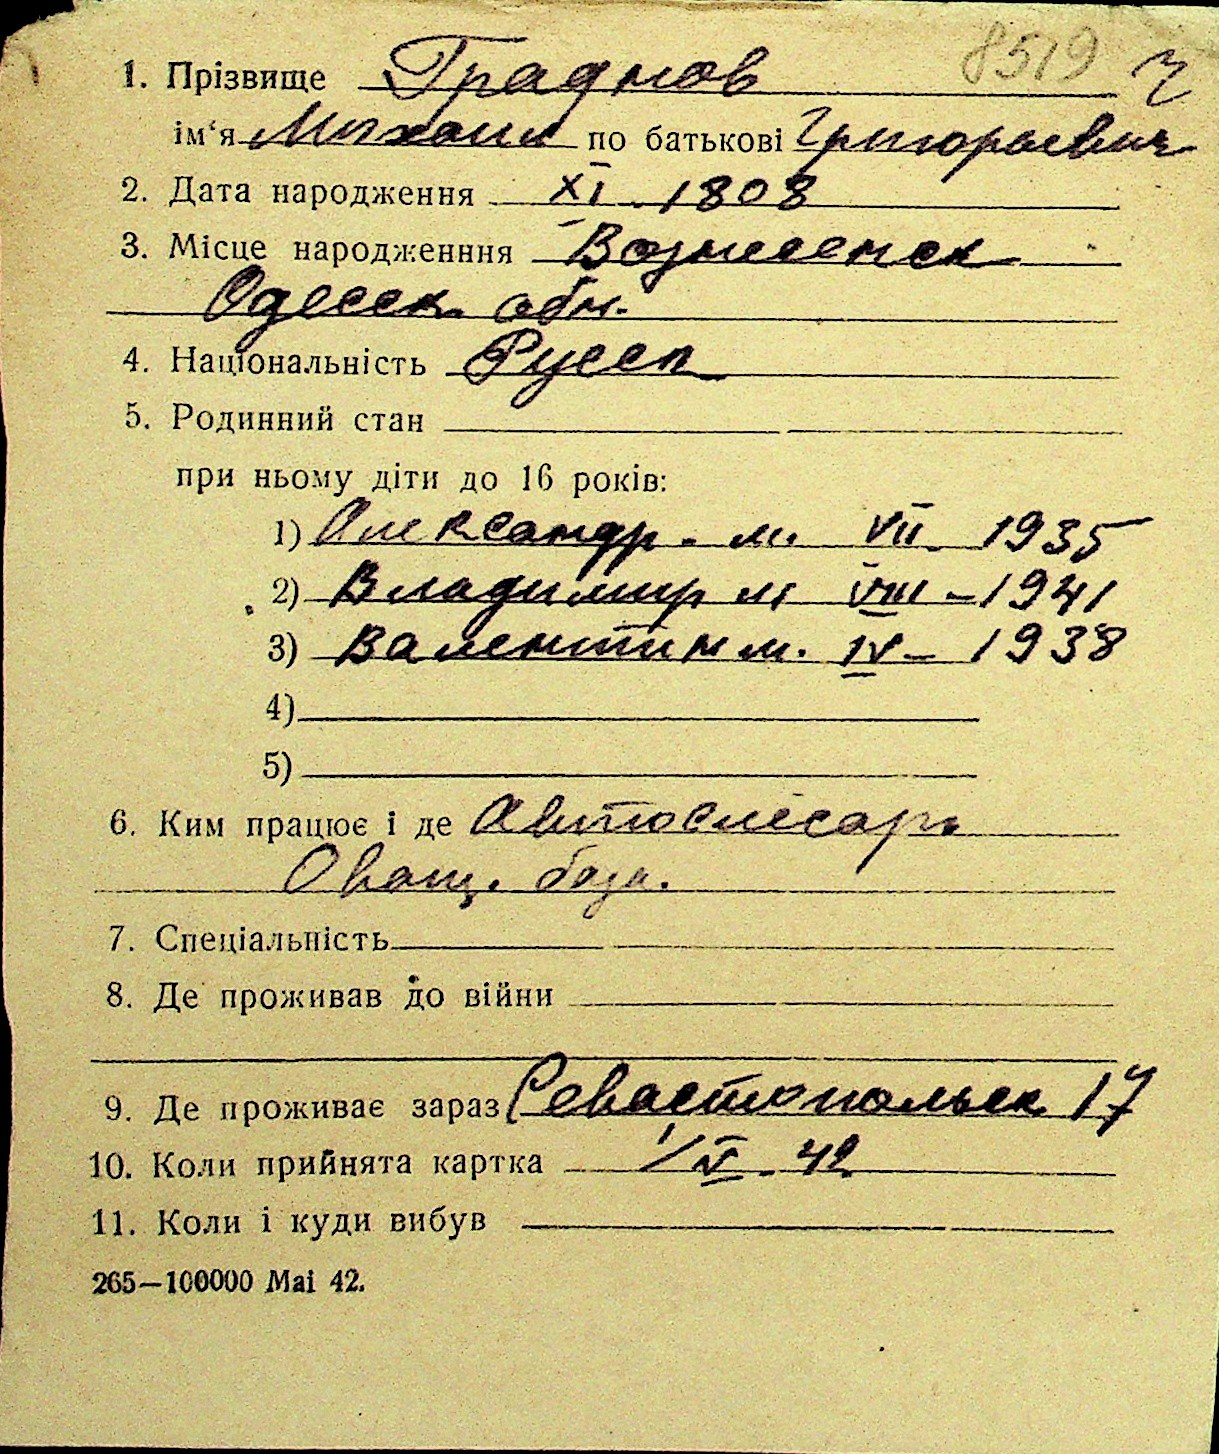 8519 Ч
1. Прізвище Граднов
ім'я Михаил по батькові Григорьевич
2. Дата народження XI. 1808
3. Місце народженння Вознесенск
Одесск. обл.
4. Національність Русск
5. Родинний стан
при ньому діти до 16 років:
1) Александр. м. VII. 1935
2) Владимир м VIII - 1941
3) Валентин м. IV - 1938
4)
5)
6. Ким працює і де Автослесарь
база.
7. Спеціальність
8. Де проживав до війни
9. Де проживає зараз Севастопольск 17
10. Коли прийнята картка 1/V. 42
11. Коли і куди вибув
265—100000 Mai 42.